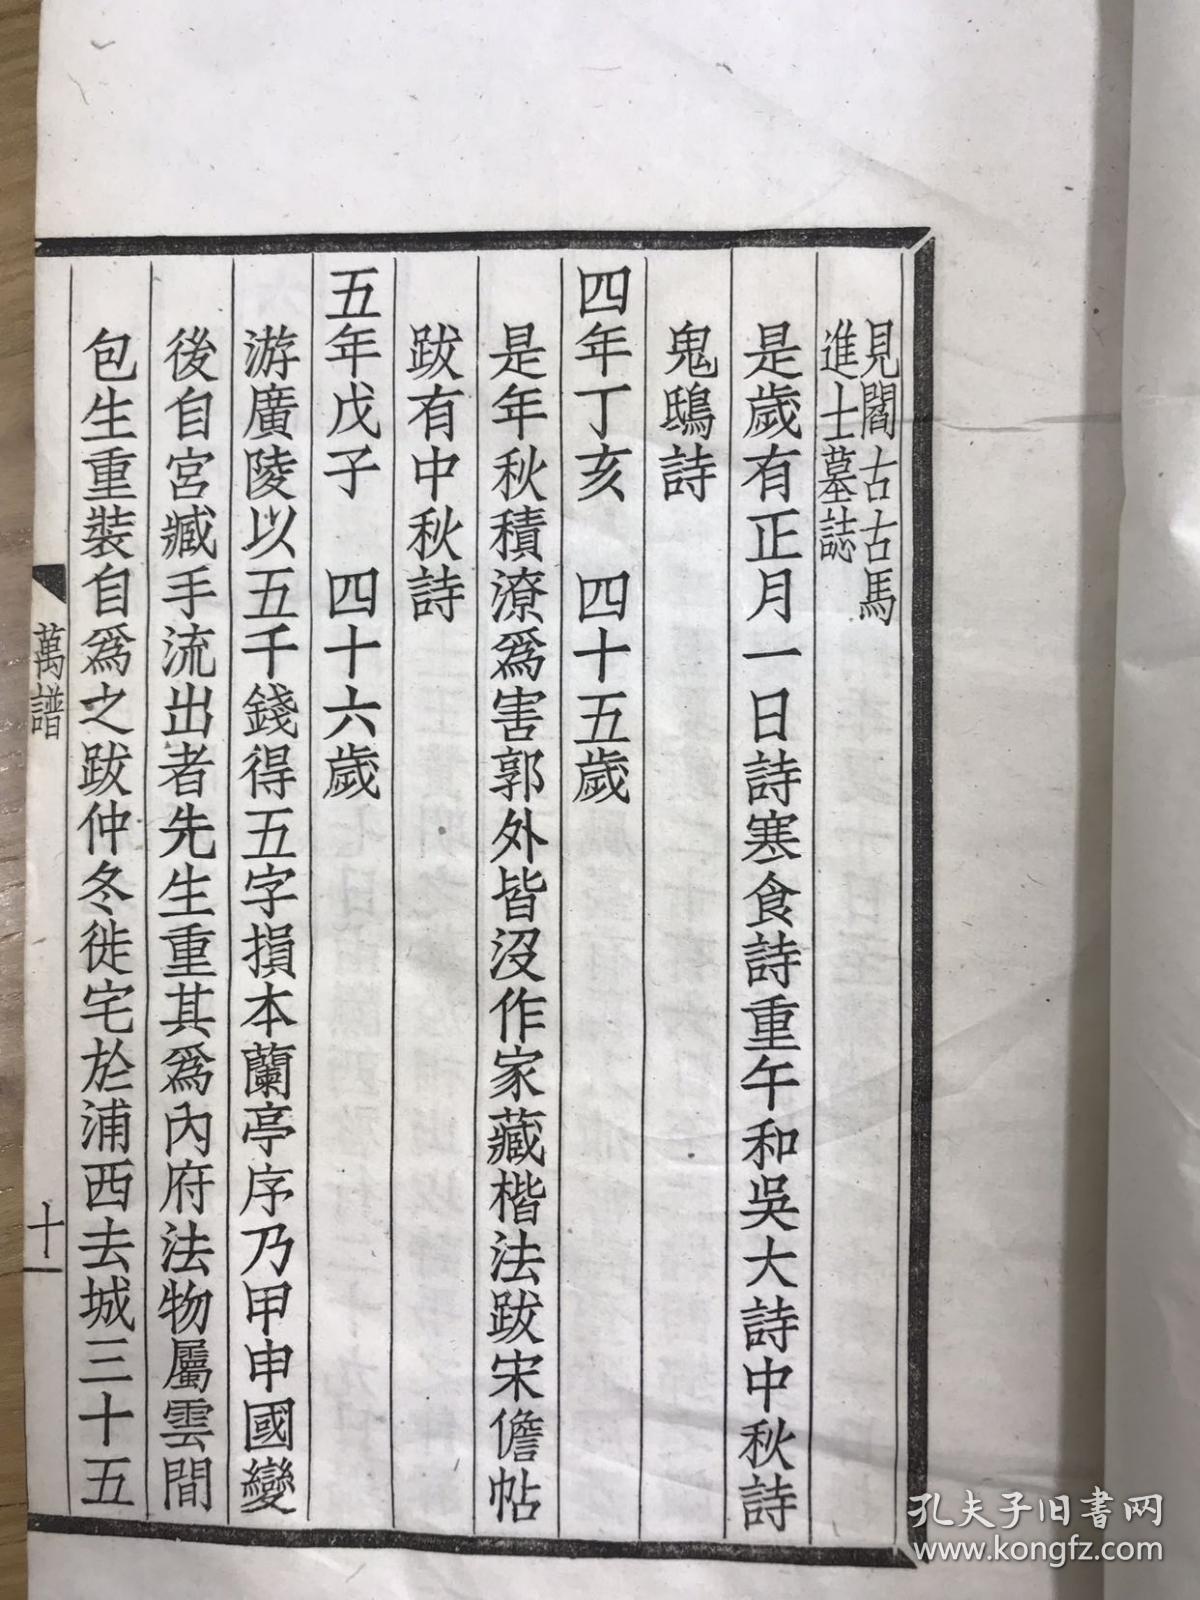 見閻古古馬
進士墓誌
是歲有正月一日詩寒食詩重午和吳大詩中秋詩
鬼鴟詩
四年丁亥　四十五歲
是年秋積潦爲害郭外皆沒作家藏楷法跋宋儋帖
跋有中秋詩
五年戊子　四十六歲
游廣陵以五千錢得五字損本蘭亭序乃甲申國變
後自宮臧手流出者先生重其爲內府法物屬雲間
包生重裝自爲之跋仲冬徙宅於浦西去城三十五
萬譜
十一
孔夫子旧书网
www.kongfz.com